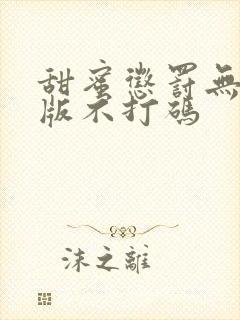 甜蜜懲罰無
版不打碼
沫之離